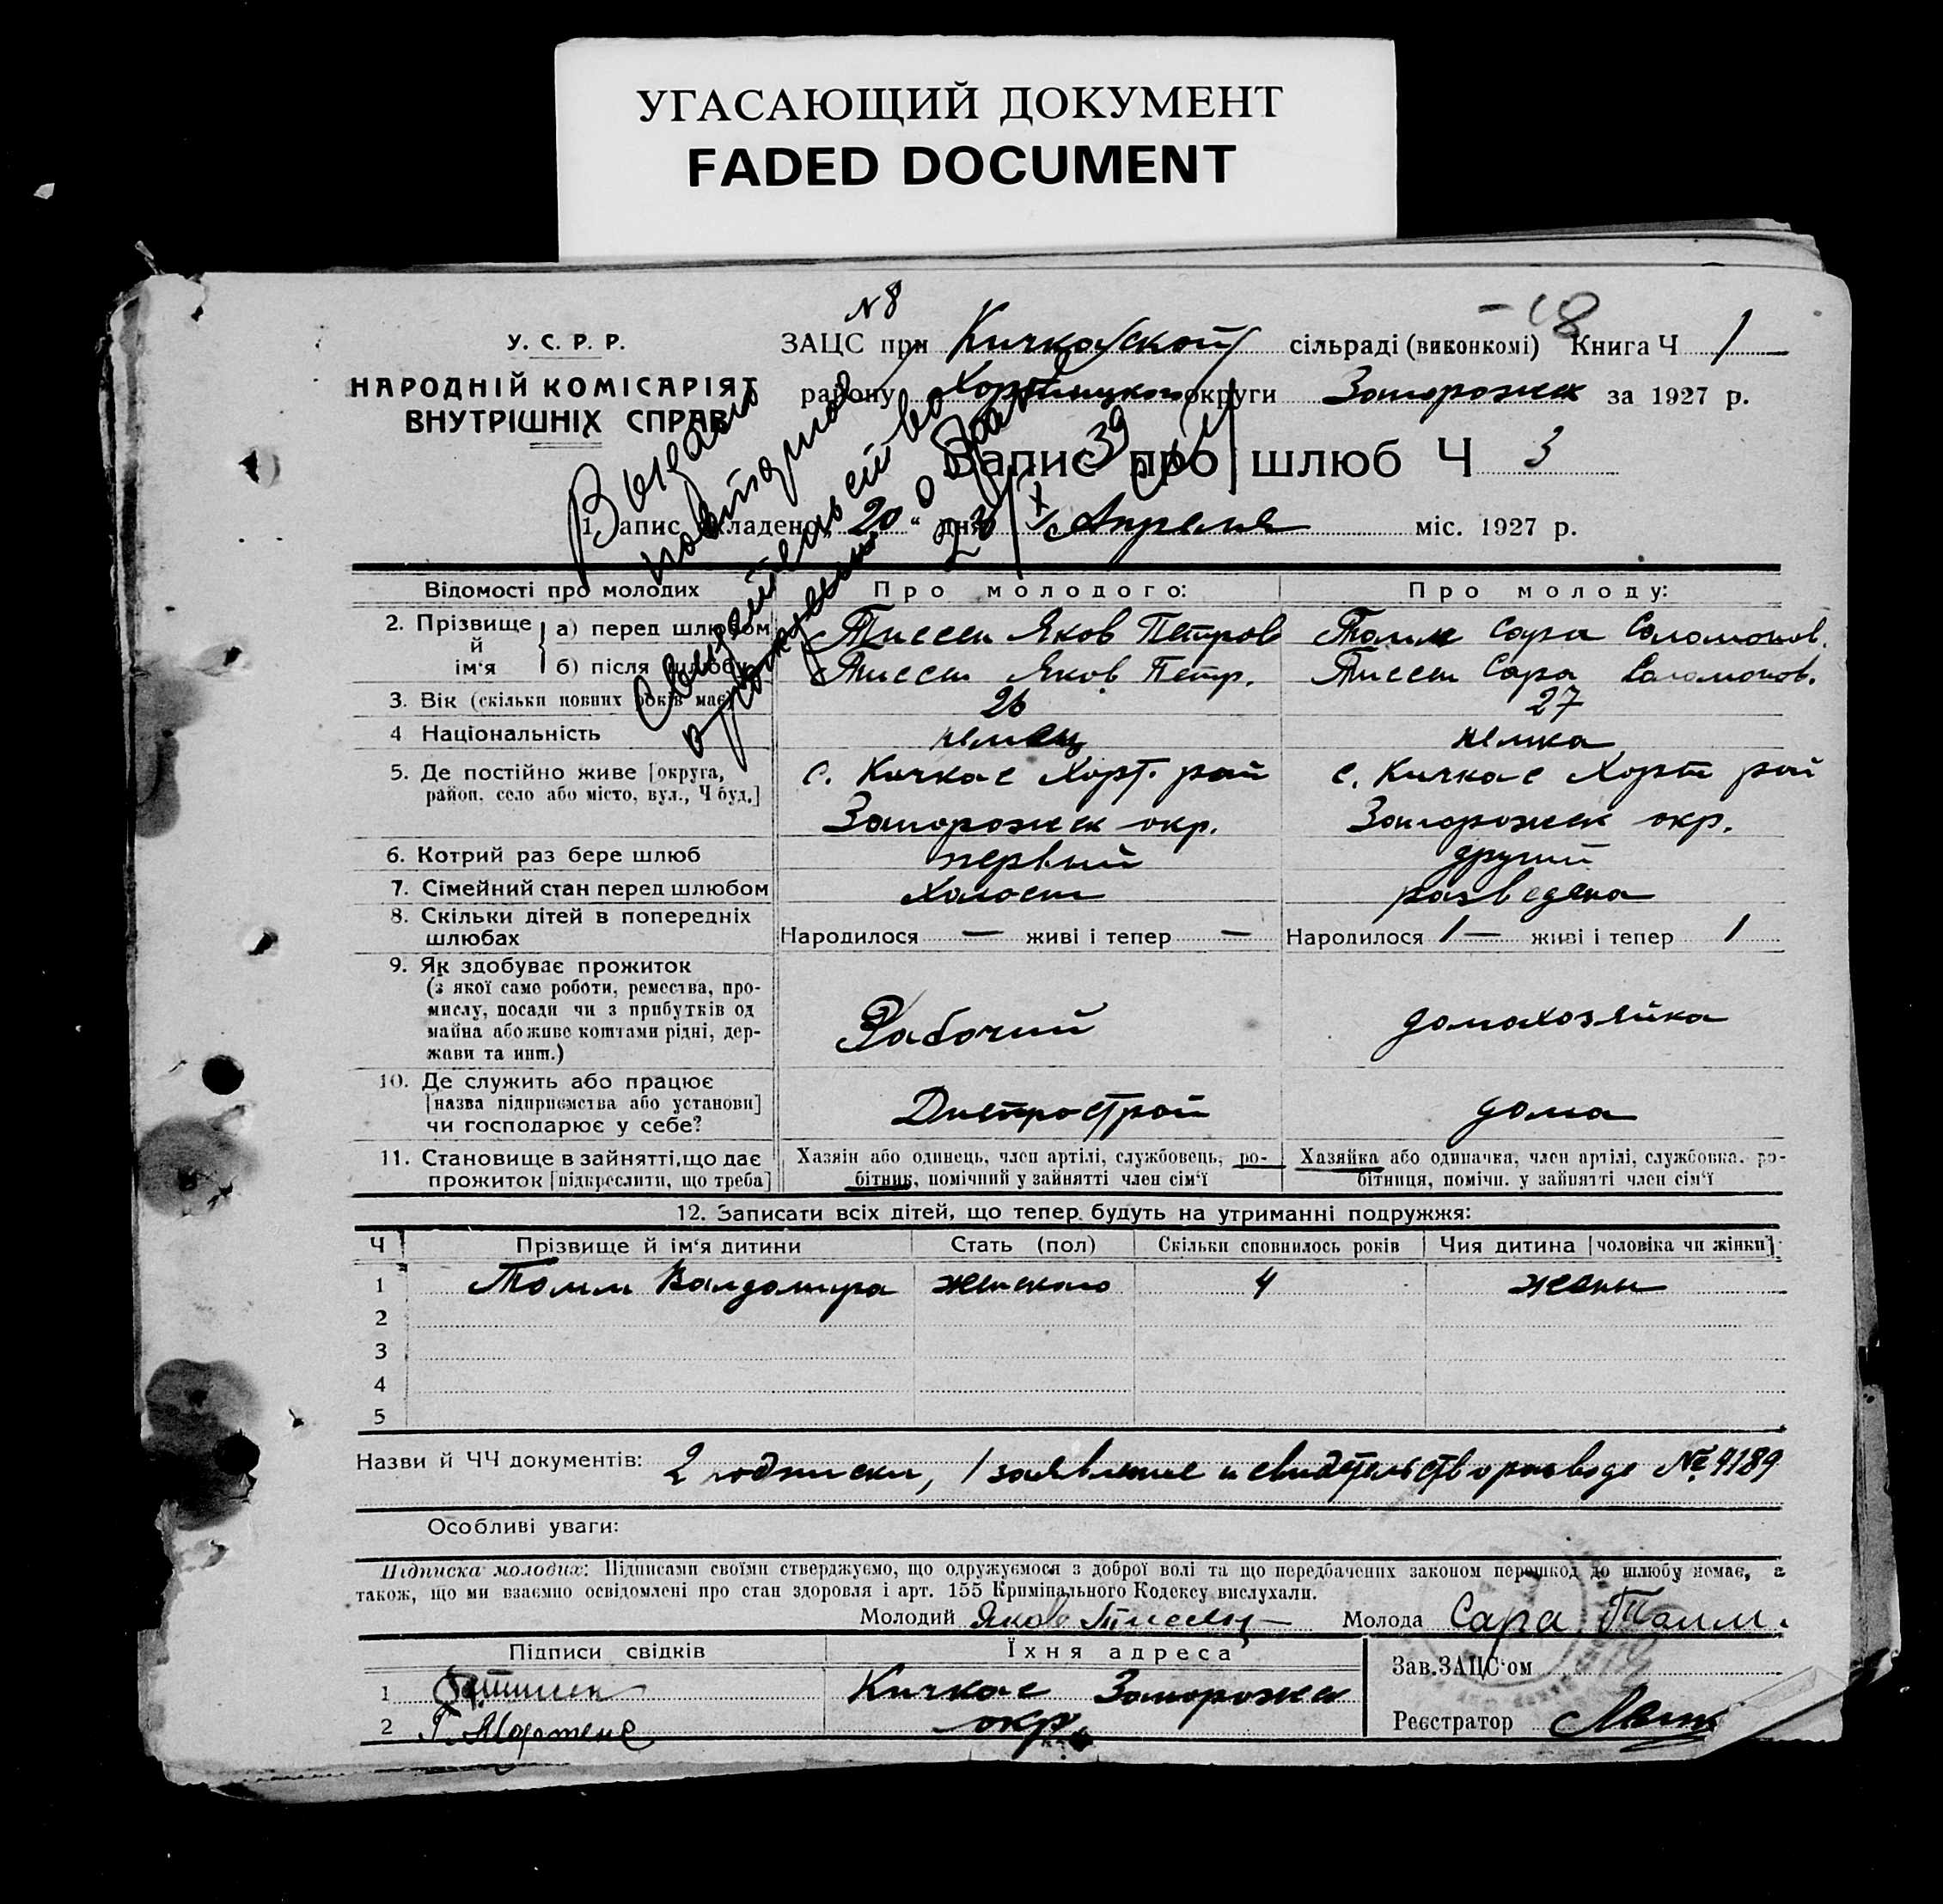 УГАСАЮЩИЙ ДОКУМЕНТ
FADED DOCUMENT
№ 8
- 18
У. С. Р. Р.
НАРОДНІЙ КОМІСАРІЯТ
ВНУТРІШНІХ СПРАВ
ЗАЦС при Кичкасской сільраді (виконкомі) Книга Ч 1
району Хортицкого округи Запорожск за 1927 р.
Запис про шлюб Ч 3
1. Запис складено „20“ дня Апреля міс. 1927 р.
Выдано
повторное
свидетельство о браке
23/X 39
Відомості про молодих Про молодого: Про молоду:
2. Прізвище й ім‘я а) перед шлюбом Тиссен Яков Петров Тамм Сара Саломонов.
б) після шлюбу Тиссен Яков Петр. Тиссен Сара Саломонов.
3. Вік (скільки повних років має) 26 27
4 Національність немец немка
5. Де постійно живе [округа, район, село або місто, вул., Ч буд.] с. Кичкас Хорт. рай с. Кичкас Хорт рай
Запорожск окр. Запорожск окр.
6. Котрий раз бере шлюб первый другий
7. Сімейний стан перед шлюбом Холост разведена
8. Скільки дітей в попередніх шлюбах Народилося — живі і тепер — Народилося 1 — живі і тепер 1
9. Як здобуває прожиток
(з якої саме роботи, ремества, про-
мислу, посади чи з прибутків од
майна або живе коштами рідні, дер-
жави та инш.)
Рабочий домахозяйка
10. Де служить або працює
[назва підприємства або установи]
чи господарює у себе?
Днепрострой дома
11. Становище в зайнятті, що дає
прожиток [підкреслити, що треба]
Хазяін або одинець, член артілі, службовець, ро-
бітник, помічний у зайнятті член сім‘ї
Хазяйка або одиначка, член артілі, службовка, ро-
бітниця, помічн. у зайнятті член сім‘ї
12. Записати всіх дітей, що тепер будуть на утриманні подружжя:
Ч Прізвище й ім‘я дитини Стать (пол) Скільки сповнилось років Чия дитина [чоловіка чи жінки]
1 Тамм Валдомира женского 4 жены
2
3
4
5
Назви й ЧЧ документів: 2 подписки, 1 заявление и свидетельство разводе № 4189
Особливі уваги:
Підписка молодих: Підписами своїми стверджуємо, що одружуємося з доброї волі та що передбачених законом перешкод до шлюбу немає, а
також, що ми взаємно освідомлені про стан здоровля і арт. 155 Кримінального Кодексу вислухали.
Молодий Яков Тиссен Молода Сара Тамм.
Підписи свідків Їхня адреса
1 Кичкас Запорожск
2 Г. Мартенс окр.
Зав. ЗАЦС‘ом
Реєстратор